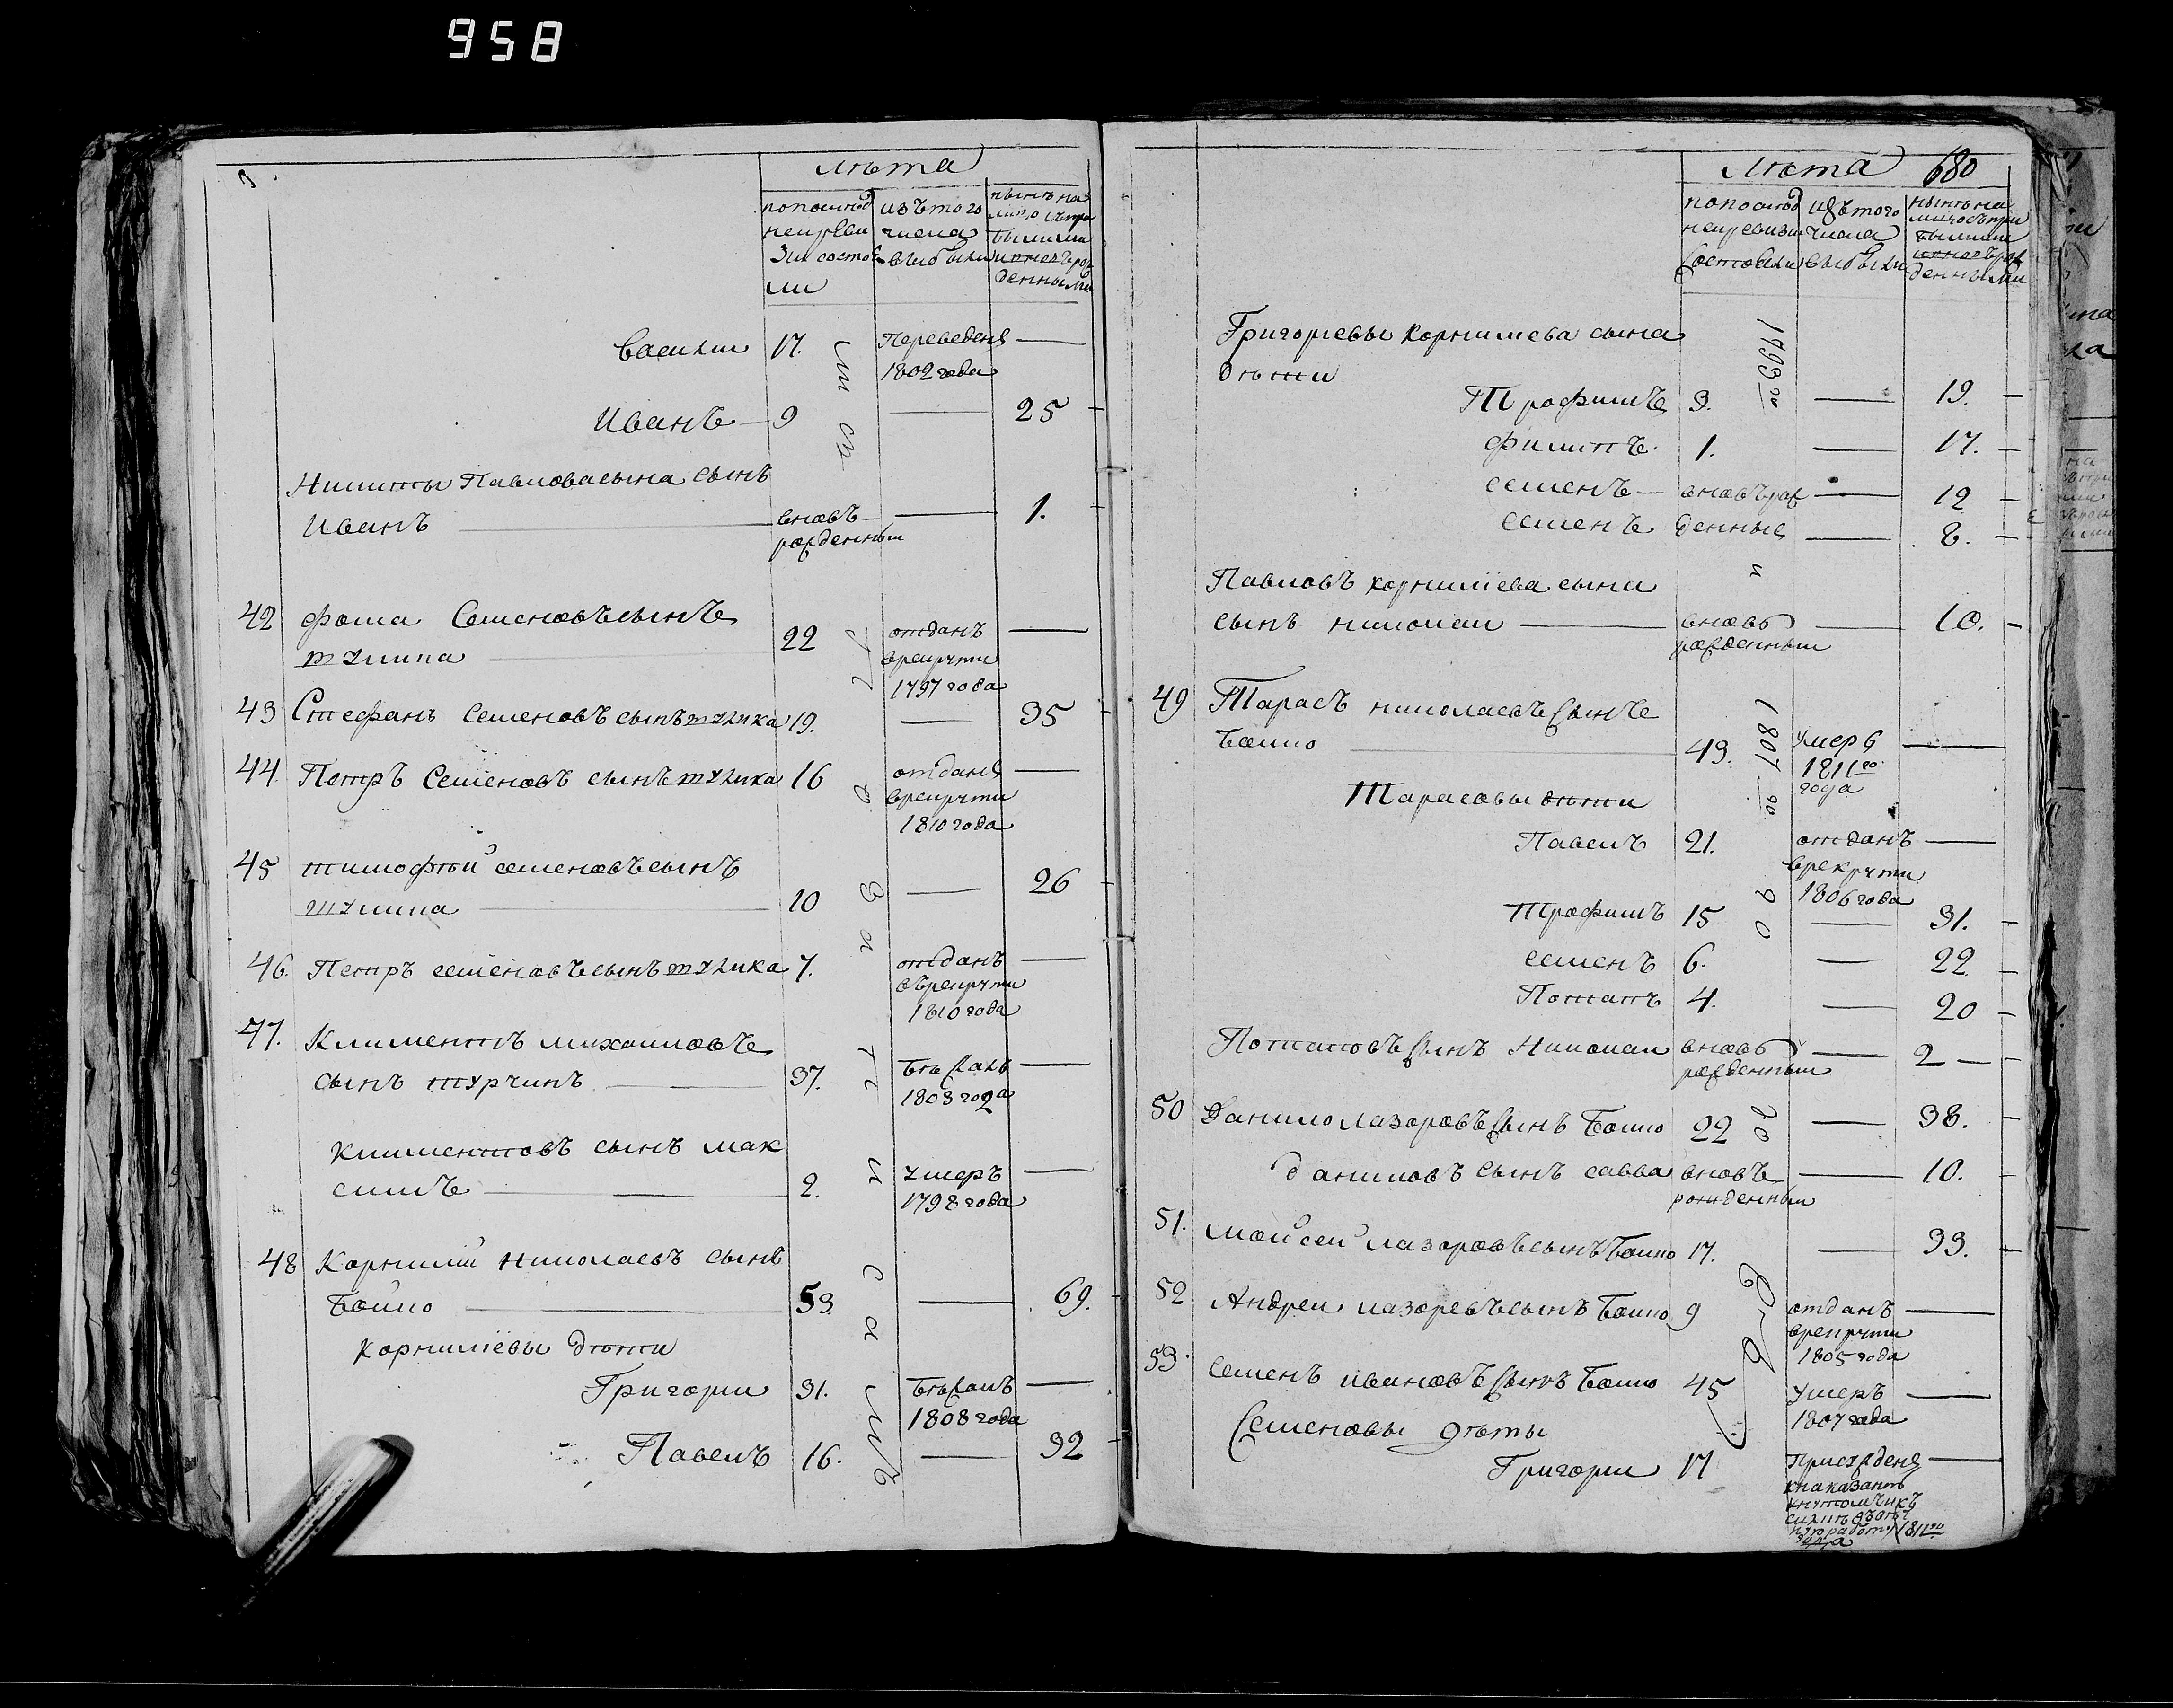 958
лѣта
попослѣд
неиреви
зіи состоя
ли
изътого
числа
выбыли
нынѣ на
лицо съпри
былыми
ивновърож
денными
Василии 17. Переведенъ
1802 года
Иванъ 9 25
Никиты Павлова сына сынъ
Иванъ вновь 1.
рожденныи
42 фома Семеновъ сынъ
тулика 22 отданъ
врекруты
1797 года
43 Стефанъ Семеновъ сынъ тулика 19. 35
44 Петръ Семеновъ сынъ тулика 16 отданъ
врекруты
1810 года
45 тимофѣй семеновъ сынъ
тулика 10 26
46. Петръ семеновъ сынъ тулика 7. отданъ
въ рекруты
1810 года
47. Климентъ михаиловъ
сынъ турчинъ 37. бѣжалъ
1803 года
климентовъ сынъ мак
симъ 2. умеръ
1798 года
48 Корнилій николаевъ сынъ
бойко 53 69.
корниліевы дѣти
Григории 31. бѣжалъ
1808 года
Павелъ 16. 32
лѣта 680
попослѣд
неиревизіи
состояли
изътого
числа
выбыли
нынѣ на
лицосъпри
былыми
ивновърож
денными
Григориевы корнилиева сына
дѣти
Трофимъ 3. 19.
филипъ 1. 17.
семенъ вновърож 12
семенъ денные 8.
Павловъ корнилиева сына
сынъ николаи вновь 10.
рожденныи
49 Тарасъ николаевъ сынъ
бойко 43. умеръ
1811го
года
Тарасовы дѣти
Павелъ 21. отданъ
врекруты
1806 года
Трофимъ 15 31.
семенъ 6. 22
Потапъ 4. 20
Потаповъ сынъ Николаи вновь 2
рожденныи
50 Данило лазоровъ сынъ бойко 22 38.
даниловъ сынъ савва вновь 10.
рожденныи
51. моисеи лазоровъ сынъ бойко 17. 33.
52 Андреи лазоревъ сынъ бойко 9 отданъ
врекруты
1805 года
53. семенъ ивановъ сынъ бойко 45 умеръ
1807 года
Семеновы дѣты
Григории 17 Присужденъ
кнаказанію
кнутомъ икъ
1811го
года
1793го
1807 го